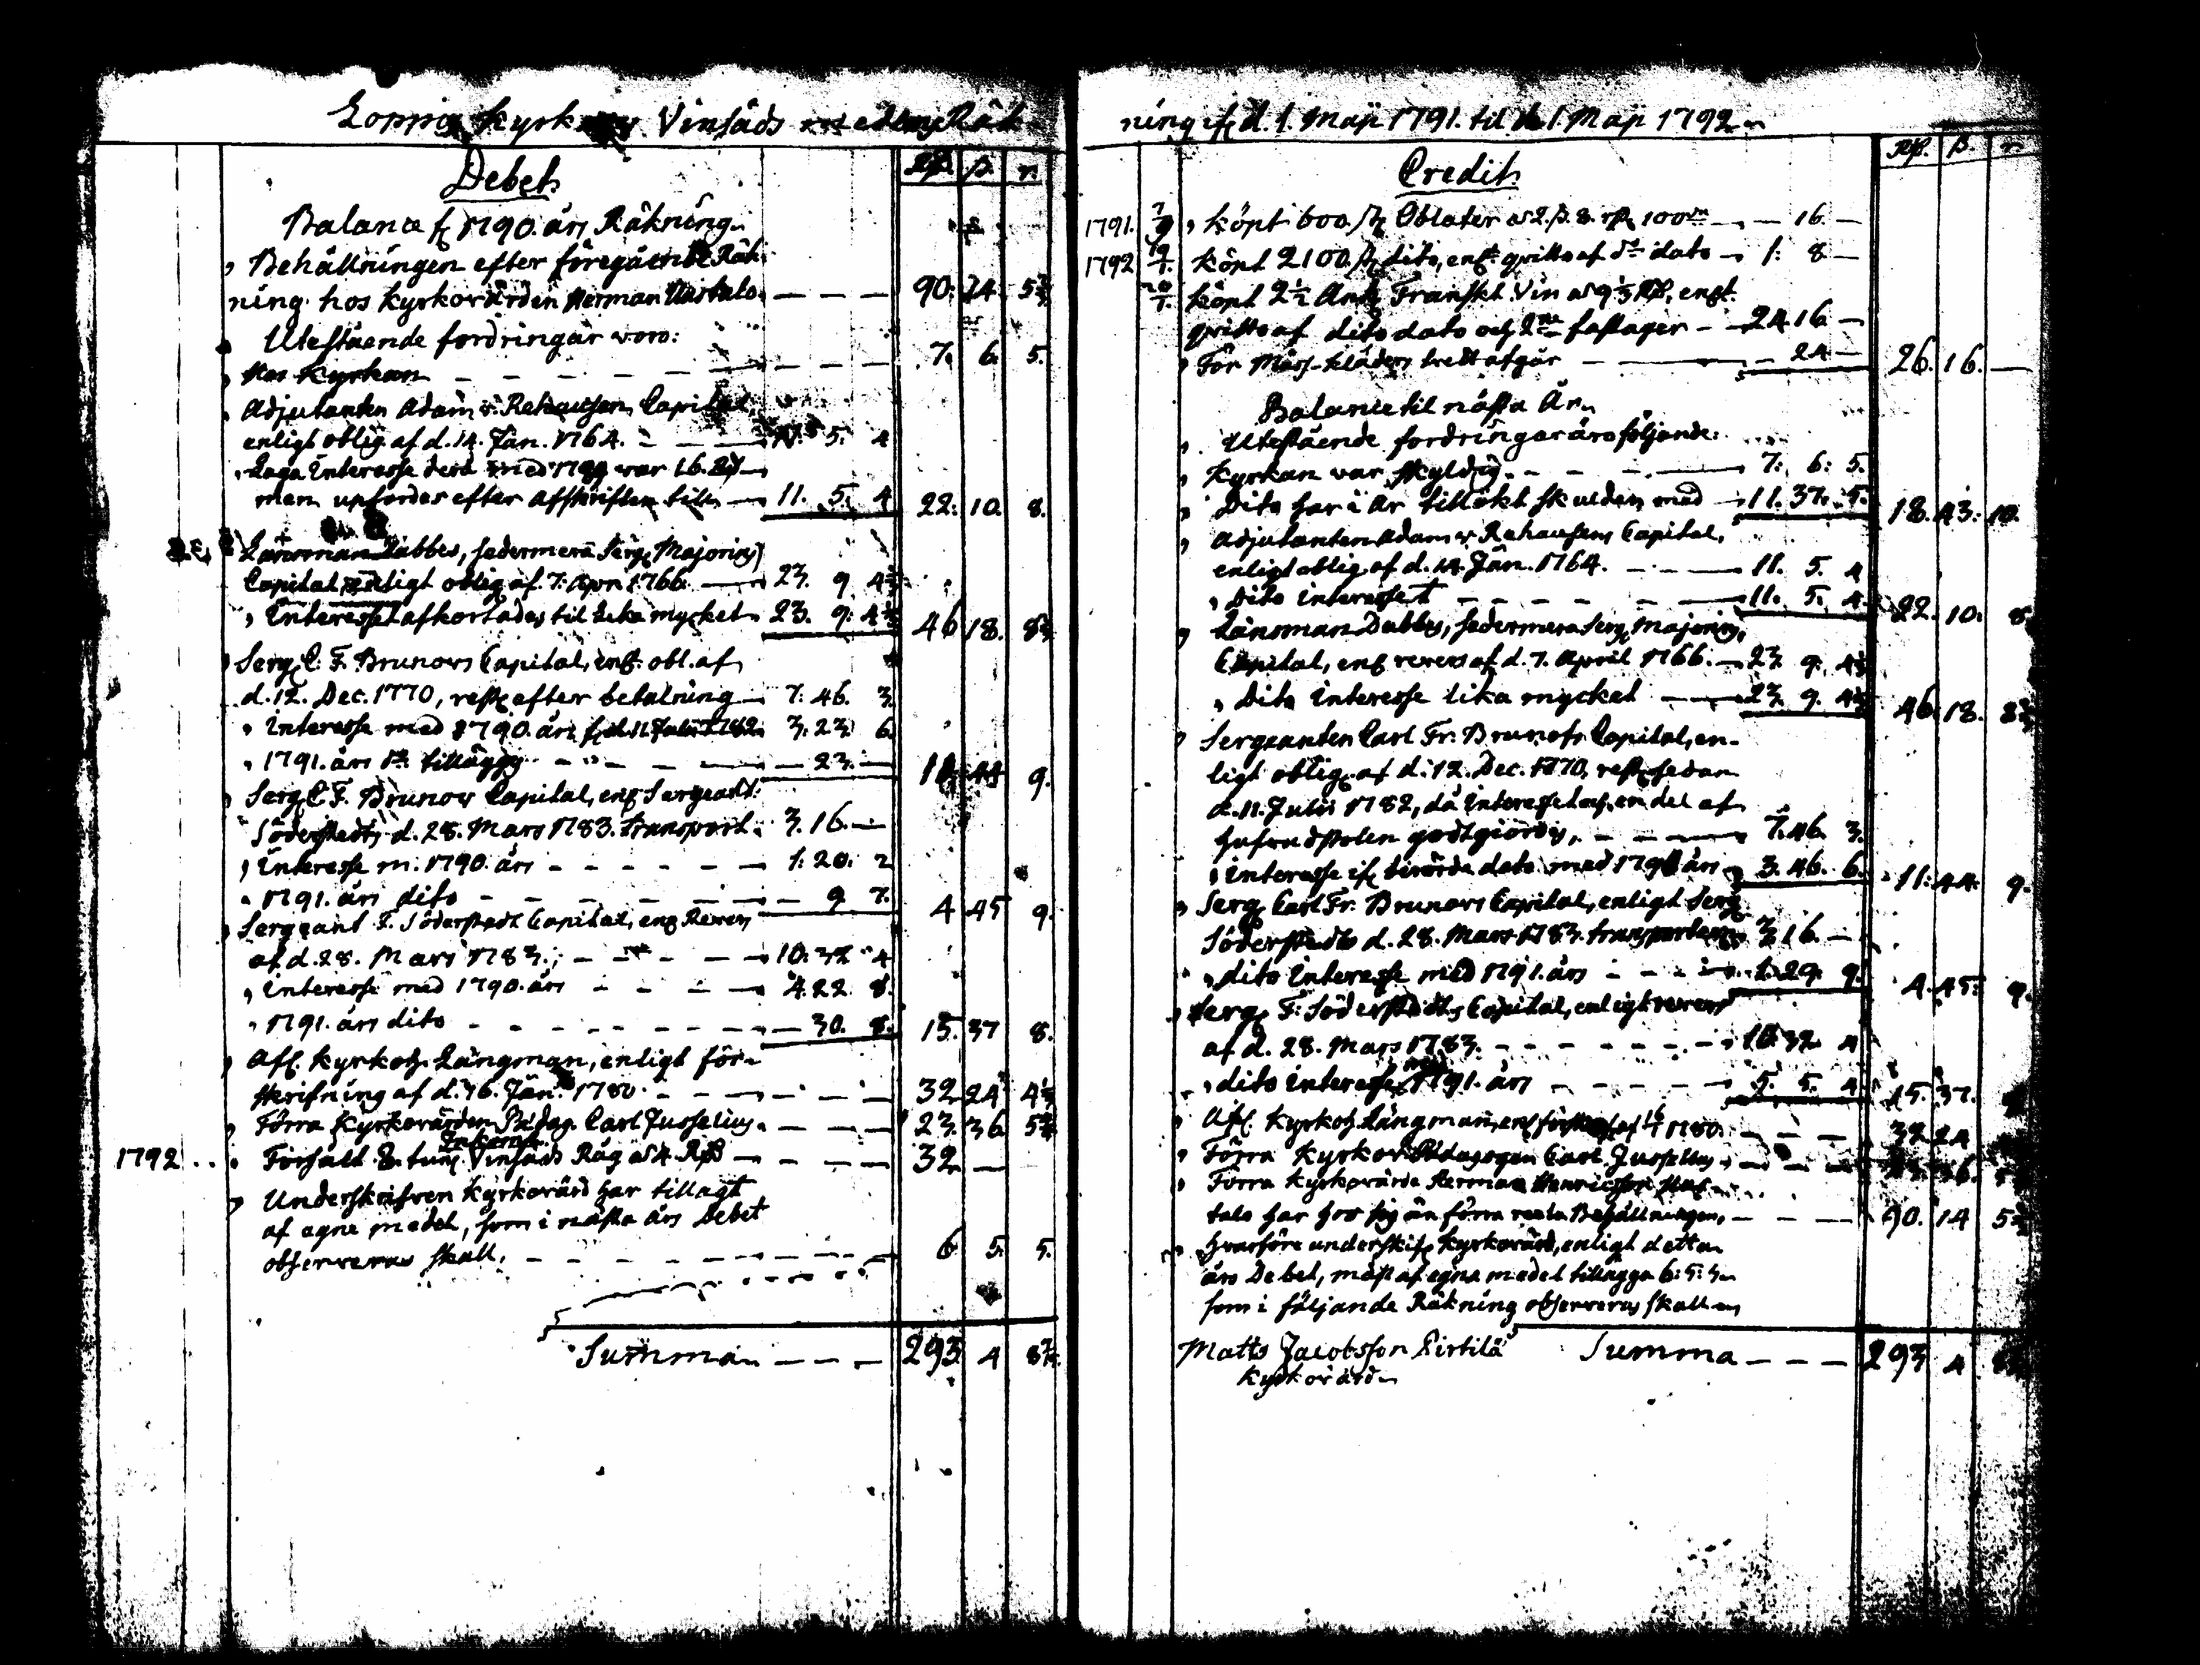 Loppis Kyrkas Vinsäds medlens Räk-
Debet.
Rß. ß. r.
Balance fr 1790. års Räkning.
Behållningen efter föregående Räk-
ning hos kyrkovärden Herman Hastalo. — — — 90: 24 5 2/3
Utestående fordringar voro:
Hos Kyrkan — — — — — — 7. 6. 5.
Adjutanten Adam v. Rehausen Capital,
enligt oblig. af d. 14. Jan. 1764. — — — 11. 5. 4
Laga Interesse
men upfördes efter afskriften till — 11. 5. 4 22. 10. 8.
Länsman Dabbes, sedermera Serg. Majorins
Capital enligt oblig. af 7. Apr. 1766. — 23. 9 4
Interesset afkortades til lika mycket 23. 9: 4 46 18. 8
Serg. C. F. Brunows Capital, enl. obl. af
d. 12. Dec. 1770, rest. efter betalning — 7: 46. 3
Interesse med 1790. års fr. d. 11 Julii 1782. 3. 23 6.
1791. års do tillägges — — — 23. — 11. 44 9.
Serg. C. F. Brunows Capital, enl. Sergeant
Söderstedts d. 28. Mars 1783. transport. 3. 16. —
Interesse m. 1790. års — — — — — 1: 20: 2
1791. års dito — — — — — 9 7. 4 45 9.
Sergeant F. Söderstedt Capital, enl. Revers
af d. 28. Mars 1783., — — — 10. 32 4
Interesse med 1790. års — — — 4. 22 8.
1791. års dito — — — — — 30. 8. 15. 37 8.
Afl. Kyrkoh. Långman, enligt för-
skrifning af d. 16. Jan. 1780. — — — 32 24 4
Förra Kyrkovärden Pædag. Carl Jusselius. — — — 23. 36 5
1792 Försålt 8. tunl. Vinsäds Råg a 4. Rß — — — 32 —
Underskrifven Kyrkovärd har tillagt
af egne medel, som i nästa års Debet
observeras skall. — — — — — 6 5. 5.
Summa — — — 293 4 8
ning ifr. d. 1. Maji 1791. til d. 1. Maji 1792.
Credit.
Rß. ß. r.
1791. 7/9 Köpt 600. st. Oblater a 2. ß. 8. r. pr 100de — — 16. —
1792 19/1. Köpt 2100. st. dito, enl. qvitto af do dato — 1: 8 —
20/1. Köpt 2 1/2 Ank. Franskt Vin a 9 1/3 Rß. enl.
qvitto af dito dato och 2ne fastager — 24. 16 —
För Mäss-kläders tvätt afgår — — 24 — 26. 16. —
Balance til nästa År.
Utestående fordringar äro följande:
Kyrkan var skyldig. — — — 7: 6: 5.
Dito har i år tillökt skulden med — 11. 37. 5. 18. 43: 10.
Adjutanten Adam v. Rehausens Capital,
enligt oblig. af d. 14. Jan. 1764. — — — 11. 5. 4
Dito Interesset — — — — — 11. 5. 4. 22. 10: 8.
Länsman Dabbes, sedermera Serg. Majorins,
Capital, enl. revers af d. 7. April 1766. — 23 9. 4
Dito Interesse lika mycket — — 23 9. 4 46 18. 8
Sergeanten Carl Fr. Brunofs Capital, en-
ligt oblig. af d. 12. Dec. 1770, rest. sedan
d. 11. Julii 1782, då Interesset och en del af
hufvudstolen godtgiordes, — — — 7. 46 3.
Interesse ifr. berörde dato med 1791 års 3. 46. 6. 11: 44. 9.
Serg. Carl Fr. Brunows Capital, enligt Serg.
Söderstedts d. 28. Mars 1783. transporten 3 16. —
dito Interesse med 1791. års — — — 1. 29. 9. 4. 45: 9.
Serg. F. Söderstedts Capital, enligt revers
af d. 28. Mars 1783. — — — — — 10 32 4
dito Interesse med 1791. års — — — 5. 5. 4 15. 37.
Afl. Kyrkoh. Långman, enl. 16/1 1780. — — — 32 24
Förra Kyrkov. Pædagogen Carl Jusselius, — — —
Förra Kyrkovärden Herman Henricsson Has-
talo har hos sig än förra veela Behållningen, — — — 90. 14 5
Hvarföre underskr. Kyrkovärd, enligt detta
års Debet, måst af egna medel tillägga 6: 5: 5
som i följande Räkning observeras skall
Matts Jacobsson Pirtilä Summa — — — 293 4
Kyrkovärd